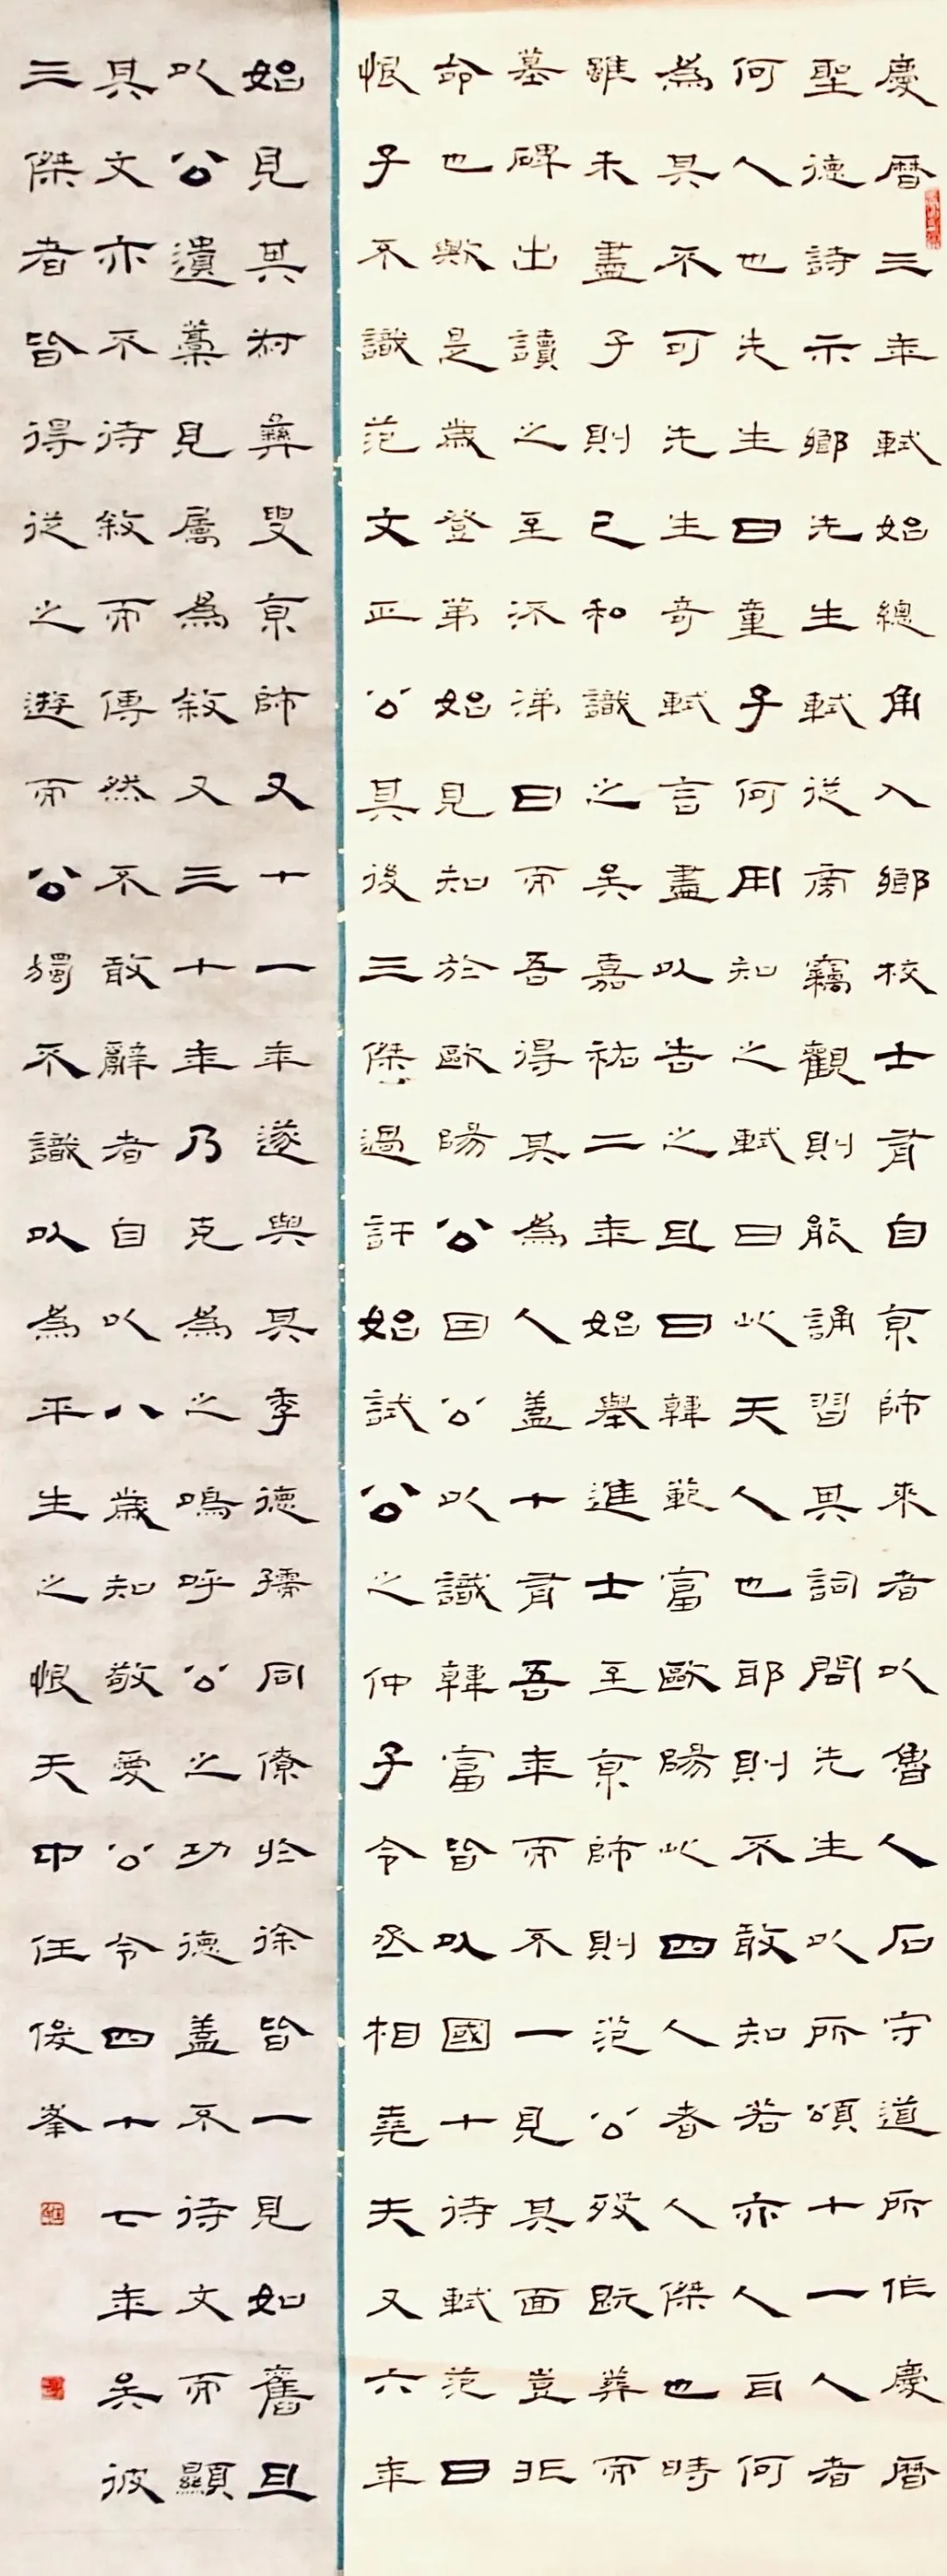 慶曆三年軾始總角入鄉校士有自京師來者以魯人石守道所作慶曆
聖德詩示鄉先生軾從旁竊觀則能誦習其詞問先生以所頌十一人者
何人也先生曰童子何用知之軾曰此天人也耶則不敢知若亦人耳何
為其不可先生奇軾言盡以告之且曰韓範富歐陽此四人者人傑也時
雖未盡子則已和識之吳嘉祐二年始舉進士至京師則范公歿既葬而
墓碑出讀之至流涕曰而吾得其為人蓋十有吾年而不一見其面豈非
命也歟是歲登第始見知於歐陽公因公以識韓富皆以國十待軾范曰
恨子不識范文正公其後三傑過訐始試公之仲子令丞相堯夫又六年
始見其村彝叟京師又十一年遂與其季德孺同僚於徐皆一見如舊且
以公遺藁見屬為敘又三十年乃克為之嗚呼公之功德蓋不待文而顯
其文亦不待敘而傳然不敢辭者自以八歲知敬愛公令四十七年吳彼
三傑者皆得從之遊而公獨不識以為平生之恨天中任俊峯